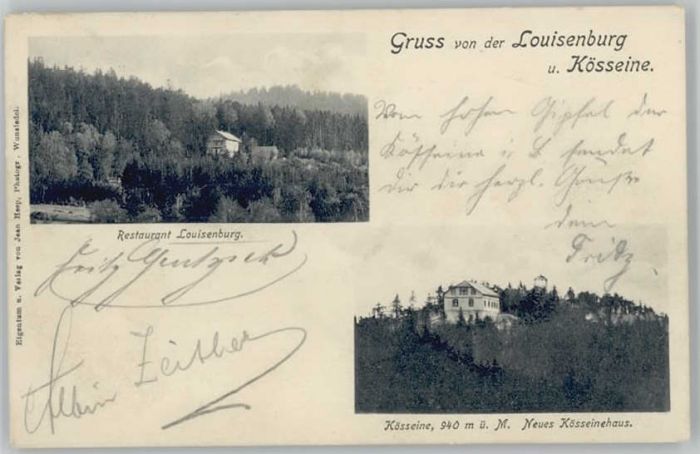 Gruss von der Louisenburg
u. Kösseine.
Vom hohen Gipfel der
Kösseine sendet
dir die herzl. Grüße
dein
Fritz
Restaurant Louisenburg.
Fritz
Albin Zeither
Kösseine, 940 m ü. M. Neues Kösseinehaus.
Eigentum u. Verlag von Jean Herp, Photogr. Wunsiedel.